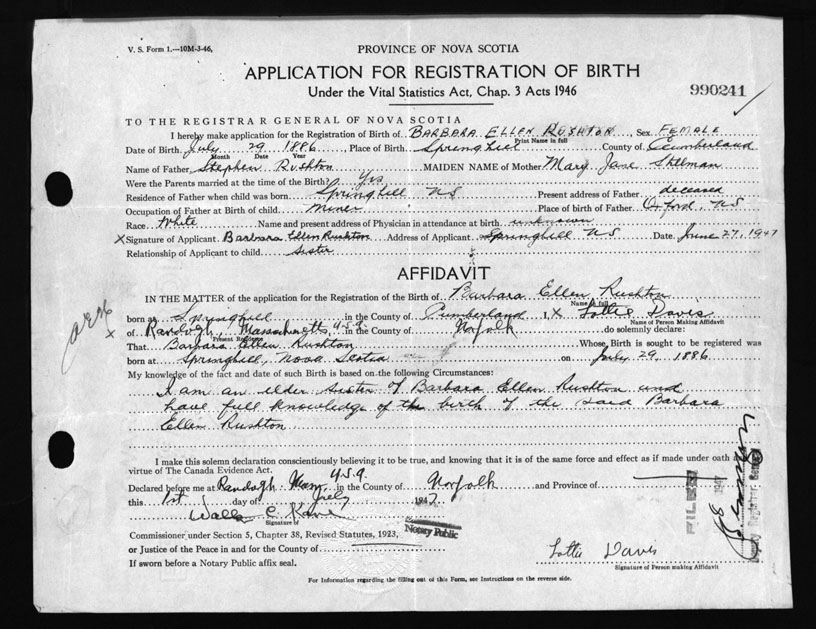 V. S. Form 1.—10M-3-46.
PROVINCE OF NOVA SCOTIA
APPLICATION FOR REGISTRATION OF BIRTH
Under the Vital Statistics Act, Chap. 3 Acts 1946
990241
TO THE REGISTRAR GENERAL OF NOVA SCOTIA
I hereby make application for the Registration of Birth of BARBARA ELLEN RUSHTON, Sex FEMALE
Print Name in full
Date of Birth July 29 1886, Place of Birth Springhill County of Cumberland
Month Date Year
Name of Father Stephen Rushton MAIDEN NAME of Mother Mary Jane Stelman
Were the Parents married at the time of the Birth? Yes
Residence of Father when child was born Springhill NS Present address of Father deceased
Occupation of Father at Birth of child miner Place of Birth of Father Oxford, NS
Race White Name and present address of Physician in attendance at birth unknown
X Signature of Applicant Barbara Ellen Rushton Address of Applicant Springhill NS Date June 27, 1947
Relationship of Applicant to child sister
AFFIDAVIT
IN THE MATTER of the application for the Registration of the Birth of Barbara Ellen Rushton
Name in full
born at Springhill in the County of Cumberland I, X Lottie Davis
Name of Person Making Affidavit
X of Randolgh, Massachusetts, U.S.A. in the County of Norfolk do solemnly declare:
Present Residence
That Barbara Ellen Rushton Whose Birth is sought to be registered was
born at Springhill, Nova Scotia on July 29, 1886
My knowledge of the fact and date of such Birth is based on the following Circumstances:
I am an elder sister of Barbara Ellen Rushton and
have full knowledge of the birth of the said Barbara
Ellen Rushton
I make this solemn declaration conscientiously believing it to be true, and knowing that it is of the same force and effect as if made under oath
virtue of The Canada Evidence Act.
Declared before me at Randolgh Mass, U.S.A. in the County of Norfolk and Province of
this 1st day of July 1947.
Signature of
Notary Public
Commissioner under Section 5, Chapter 38, Revised Statutes, 1923,
or Justice of the Peace in and for the County of
If sworn before a Notary Public affix seal.
Lottie Davis
Signature of Person making Affidavit
For Information regarding the filling out of this Form, see Instructions on the reverse side.
FILED